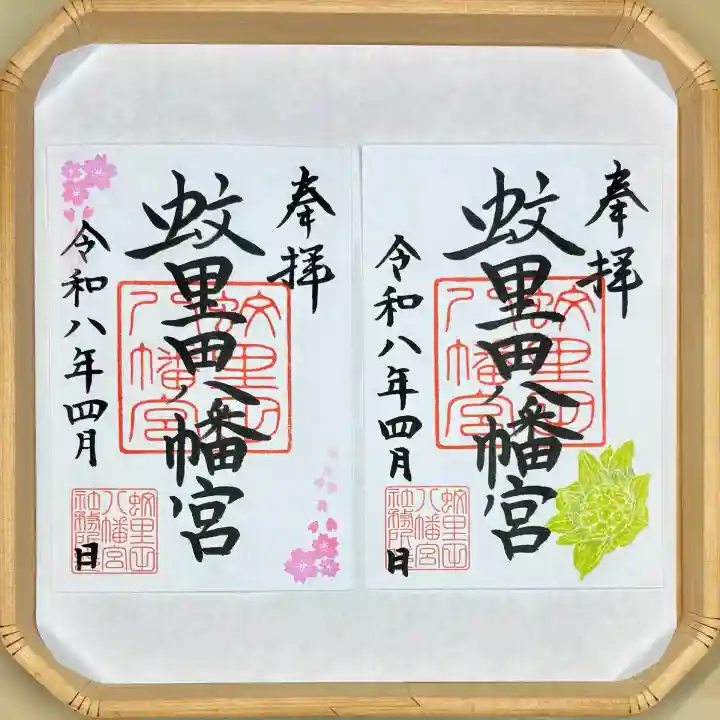 奉拝
蚊里田八幡宮
令和八年四月 日
蚊里田
八幡宮
蚊里田
八幡宮
社務所
奉拝
蚊里田八幡宮
令和八年四月 日
蚊里田
八幡宮
蚊里田
八幡宮
社務所